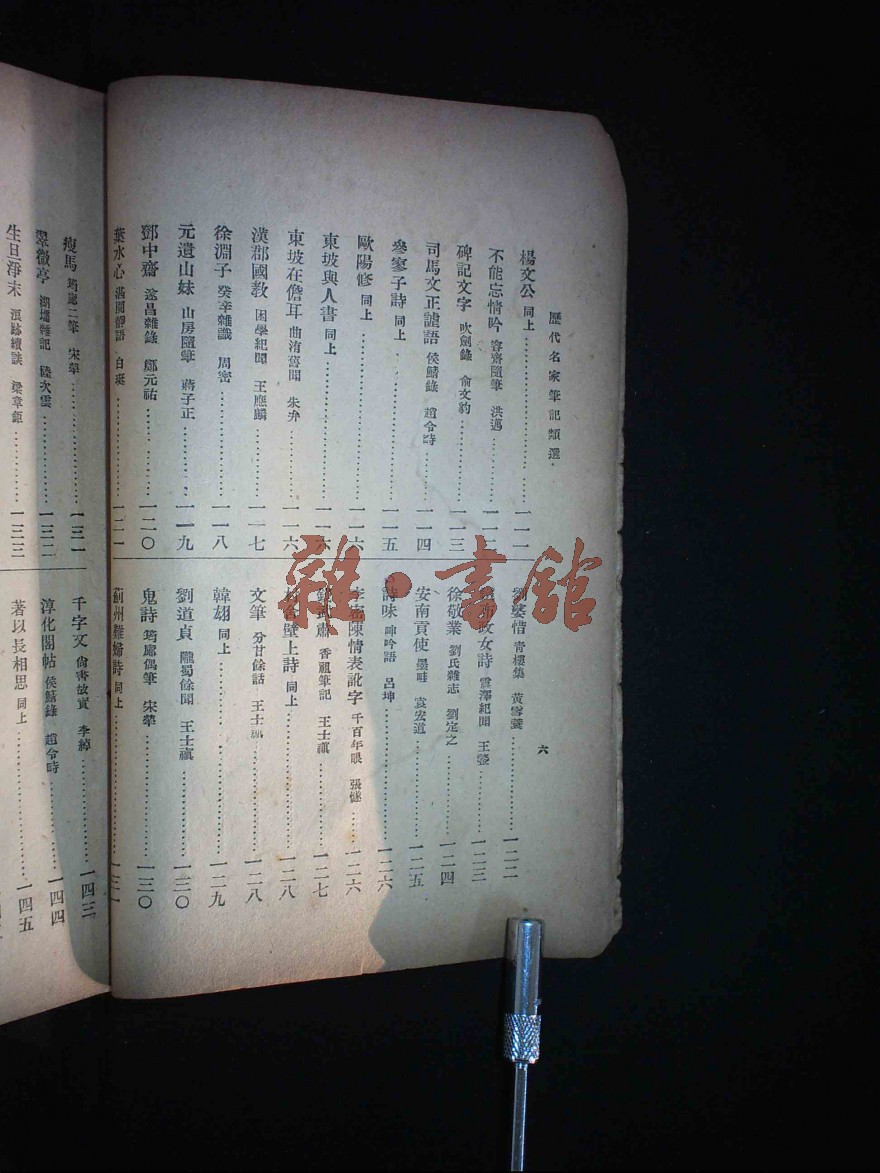 歷代名家筆記類選
六
楊文公 同上…………一一一
不能忘情吟 容齋隨筆 洪邁…………一一二
碑記文字 吹劍錄 俞文豹…………一一三
司馬文正謔語 侯鯖錄 趙令畤…………一一四
參寥子詩 同上…………一一五
歐陽修 同上…………一一六
東坡與人書 同上…………一一六
東坡在儋耳 曲洧舊聞 朱弁…………一一六
漢郡國教 困學紀聞 王應麟…………一一七
徐淵子 癸辛雜識 周密…………一一八
元遺山妹 山房隨筆 蔣子正…………一一九
鄧中齋 遂昌雜錄 鄭元祐…………一二〇
葉水心 湛淵靜語 白珽…………一二一
劉婆惜 青樓集 黃雪簑…………一二二
政女詩 震澤紀聞 王鏊…………一二三
徐敬業 劉氏雜志 劉定之…………一二四
安南貢使 墨畦 袁宏道…………一二五
詩味 呻吟語 呂坤…………一二六
李密陳情表訛字 千百年眼 張燧…………一二六
香祖筆記 王士禛…………一二七
舍壁上詩 同上…………一二八
文筆 分甘餘話 王士禛…………一二八
韓翃 同上…………一二九
劉道貞 隴蜀餘聞 王士禛…………一三〇
鬼詩 筠廊偶筆 宋犖…………一三〇
薊州難婦詩 同上…………一三一
瘦馬 筠廊二筆 宋犖…………一三一
翠微亭 湖壖雜記 陸次雲…………一三二
生旦淨末 浪跡續談 梁章鉅…………一三三
千字文 尚書故實 李綽…………一四三
淳化閣帖 侯鯖錄 趙令畤…………一四四
著以長相思 同上…………一四五
雜·書館